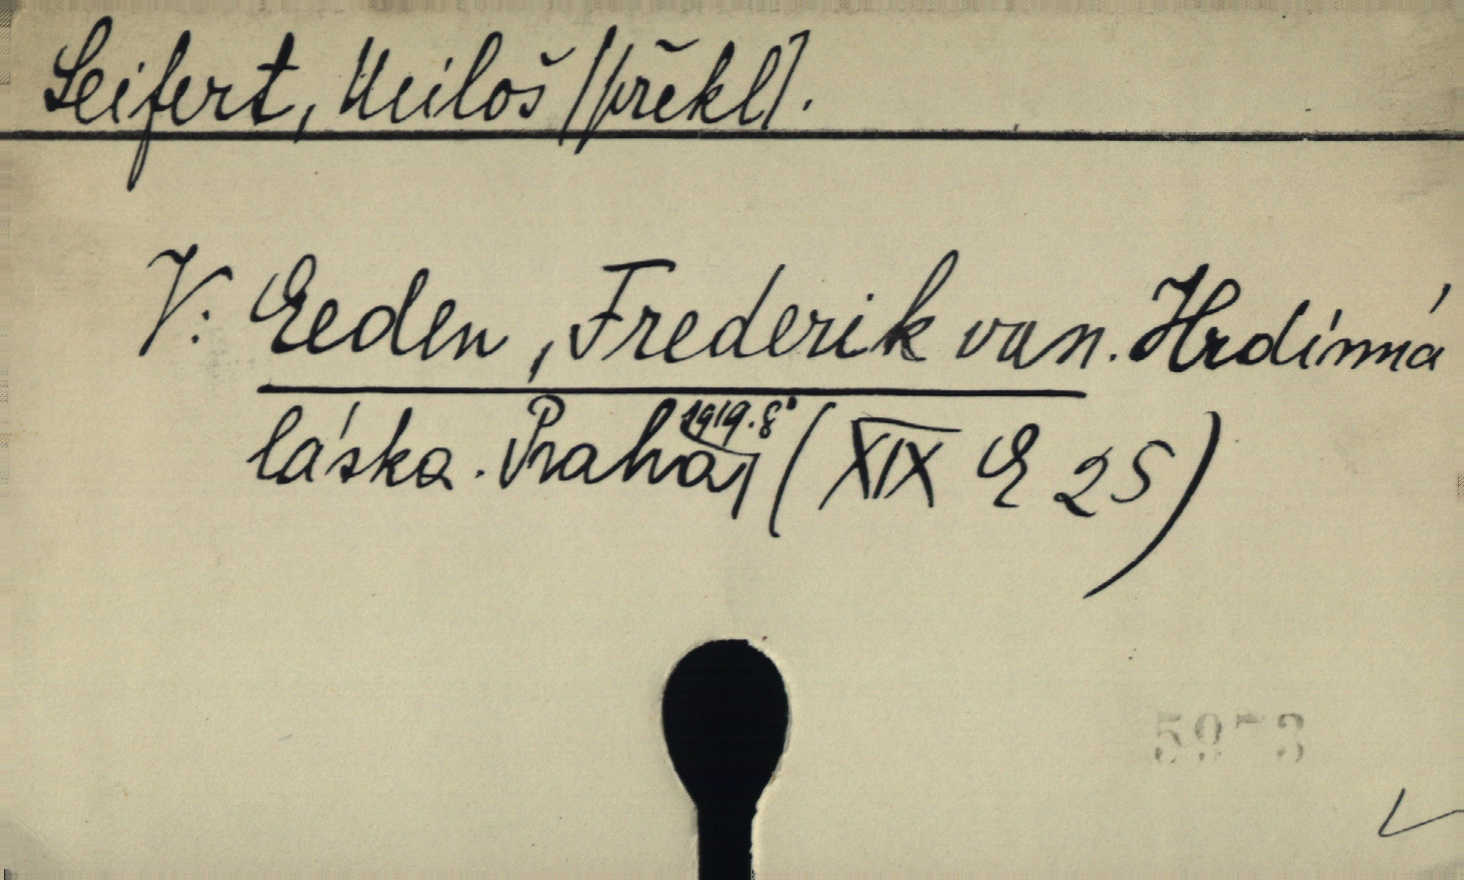 Seifert, Miloš /překl/.
V: Eeden, Frederik van. Hrdinná
láska. Praha, 1919. 8° (XIX E 25)